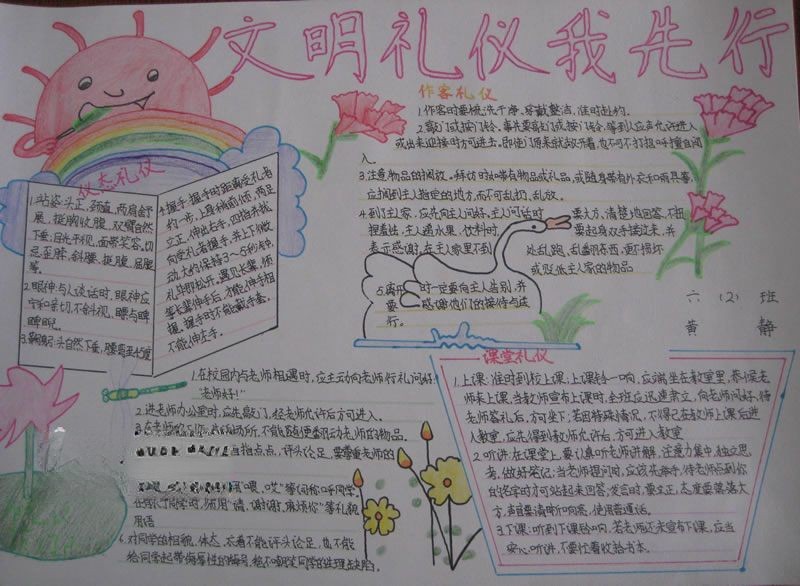 文明礼仪我先行
仪态礼仪
1.站姿:头正,颈直,两肩舒
展,挺胸收腹,双臂自然
下垂;目光平视,面带笑容。切
忌歪脖、斜腰、挺腹、屈腿
等。
2.眼神:与人谈话时,眼神应
3.鞠躬:头自然下垂,
4.握手:握手时距离受礼者
约一步,上身稍前倾,两足
立正,伸出右手,四指并拢
向受礼者握手,并上下微
动,大约保持3~5秒钟,
礼毕即松开。遇见长辈,须
等长辈伸手后,才能伸手相
握。握手时不能戴手套。
不能伸左手。
作客礼仪
1.作客时要梳洗干净,穿戴整洁,准时赴约。
2.敲门或按门铃。事先要敲门或按门铃,等到人应声允许进入
或出来迎接时方可进去。即使门原来就敞开着,也不可不打招呼擅自闯
入。
3.注意物品的搁放。拜访时如带有物品或礼品,或随身带有外衣和雨具等,
应搁到主人指定的地方,而不可乱扔、乱放。
4.到了主家,应先向主人问好,主人问话时要大方,清楚地回答,不扭
捏着怯,主人递水果、饮料时,要起身双手接过来,并
表示感谢,在主人家里不到处乱跑、乱翻东西,更不损坏
或贬低主人家的物品
5.离开时一定要向主人告别,并
要感谢他们的接待与送
行。
六(2)班
黄静
1.在校园内与老师相遇时,应主动向老师行礼问好:"
老师好!"
2.进老师办公室时,应先敲门,经老师允许后方可进入。
不能随便翻动老师的物品。
指指点点,评头论足,要尊重老师的
"喂,哎"等词称呼同学。
同学时,须用"请、谢谢、麻烦你"等礼貌
用语
6.对同学的相貌、体态、衣着不能评头论足,也不能
给同学起带侮辱性的绰号,绝不嘲笑同学的生理缺陷。
课堂礼仪
1.上课:准时到校上课;上课铃一响,应端坐在教室里,恭候老
师来上课,当教师宣布上课时,全班应迅速肃立,向老师问好,待
老师答礼后,方可坐下,若因特殊情况,不得已在教师上课后进
入教室,应先得到教师允许后,方可进入教室
2.听讲:在课堂上,要认真听老师讲解,注意力集中,独立思
考,做好笔记;当老师提问时,应该先举手,待老师点到你
的名字时方可站起来回答;发言时,要立正,态度要落落大
方,声音要清晰响亮,使用普通话。
3.下课:听到下课铃响,若老师还未宣布下课,应当
安心听讲,不要忙着收拾书本。